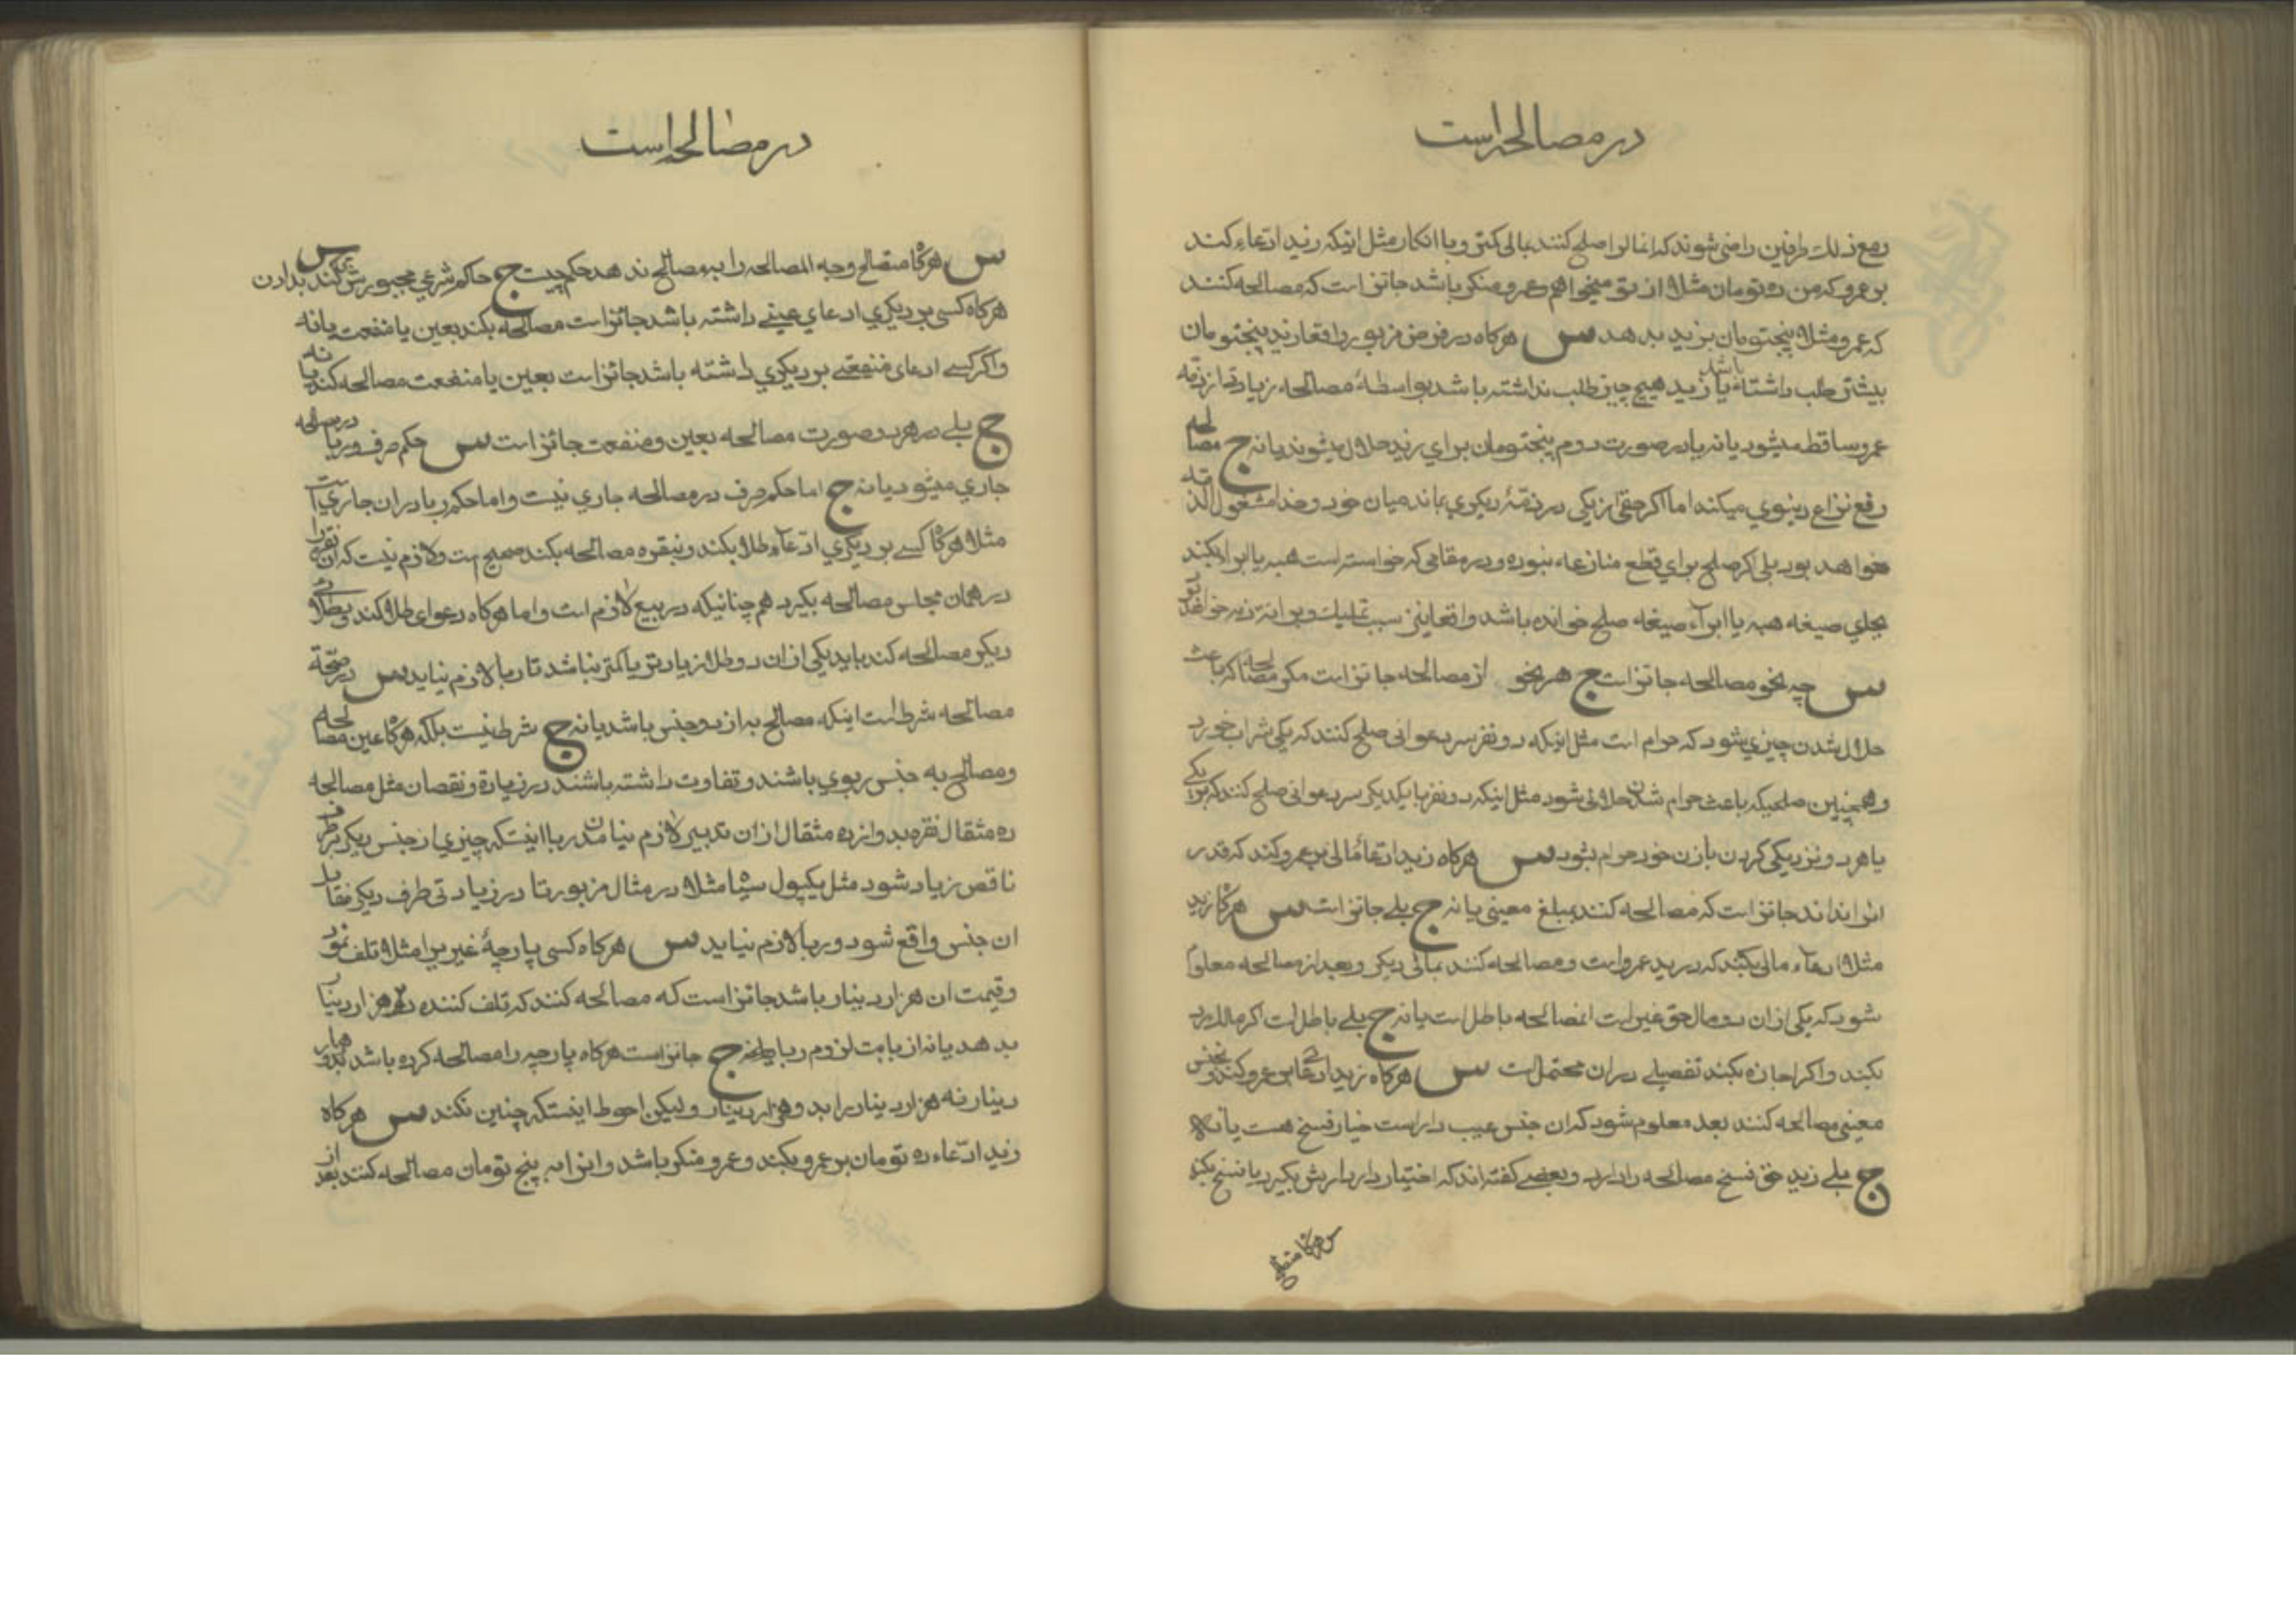 در مصالحه است
رفع نزاع طرفین راضی شوند که انمال را صلح کنند بمالی کمتر و با انکار مثل اینکه زید ادعاء کند
بر عمرو که من ده تومان مثلا از تو میخواهم و عمرو منکر باشد جائز است که مصالحه کنند
که عمرو مثلا پنجتومان بزید بدهد س هرکاه در فرض مزبور واقعا زید پنجتومان
بیشتر طلب داشته باشد یا زید هیچ چیز طلب نداشته باشد بواسطهٔ مصالحه زیادتی از ذمه
عمرو ساقط میشود یا نه یا در صورت دوم پنجتومان برای زید حلال میشوند یا نه ج مصالحه
رفع نزاع دینوی میکند اما اکر حقی از یکی در ذمهٔ دیکری بماند میان خود و خدا مشغول الذمه
خواهد بود بلی اکر صلح برای قطع منازعه نبوده و در مقامی که خواسته است هبه یا ابراء بکند
بجای صیغه هبه یا ابراء صیغه صلح خوانده باشد واقعا نیز سبب تملیک و برائت ذمه خواهد بود
س چه نحو مصالحه جائز است ج هر نحو از مصالحه جائز است مکر مصالحه که باعث
حلال شدن چیزی شود که حرام است مثل اینکه دو نفر سر دعوائی صلح کنند که یکی شراب خورد
و همچنین صلحیکه باعث حرام شدن حلالی شود مثل اینکه دو نفر با یکدیکر سر دعوائی صلح کنند که یکی
یا هر دو نزدیکی کردن با زن خود حرام بشود س هرکاه زید ادعاء مالی بر عمرو کند که قدر
انرا نداند جائز است که مصالحه کنند بمبلغ معینی یا نه ج بلی جائز است س هرکاه زید
مثلا ادعاء مالی بکند که در ید عمرو است و مصالحه کنند بمالی دیکر و بعد از مصالحه معلوم
شود که یکی از ان دو مال حق غیر است انمصالحه باطل است یا نه ج بلی باطل است اکر مالک رد
بکند و اکر اجازه بکند تفصیلی در ان محتمل است س هرکاه زید ادعائی بر عمرو کند و بجنس
معینی مصالحه کنند بعد معلوم شود که ان جنس عیب دار است خیار فسخ هست یا نه
ج بلی زید حق فسخ مصالحه را دارد و بعضی کفته اند که اختیار دارد ارش بکیرد یا فسخ بکند
س هرکاه متصالح
در مصالحه است
س هرکاه متصالح وجه المصالحه را بمصالح ندهد حکم چیست ج حاکم شرعی مجبورش کند بدادن س
هرکاه کسی بر دیکری ادعای عینی داشته باشد جائز است مصالحه بکند بعین یا منفعت یا نه
و اکر کسی ادعای منفعتی بر دیکری داشته باشد جائز است بعین یا منفعت مصالحه کند یا نه
ج بلی در هر دو صورت مصالحه بعین و منفعت جائز است س حکم صرف و ربا در مصالحه
جاری میشود یا نه ج اما حکم صرف در مصالحه جاری نیست و اما حکم ربا در ان جاری است
مثلا هرکاه کسی بر دیکری ادعاء طلا بکند و بنقره مصالحه بکند صحیح است و لازم نیست که ان نقره را
در همان مجلس مصالحه بکیرد هم چنانیکه در بیع لازم است و اما هرکاه دعوای طلا کند و بطلای
دیکر مصالحه کند باید یکی از ان دو طلا زیادتر یا کمتر نباشد تا ربا لازم نیاید س در صحة
مصالحه شرط است اینکه مصالح به از دو جنس باشد یا نه ج شرط نیست بلکه هرکاه عین مصالحه
و مصالح به جنس ربوی باشند و تفاوت داشته باشند در زیادة و نقصان مثل مصالحه
ده مثقال نقره بدوازده مثقال از ان تدبیر لازم نیامدن ربا اینستکه چیزی از جنس دیکر بر طرف
ناقص زیاد شود مثل یکپول سیاه مثلا در مثال مزبور تا در زیادتی طرف دیکر مقابل
ان جنس واقع شود و ربا لازم نیاید س هرکاه کسی پارچهٔ غیر را مثلا تلف نمود
و قیمت ان هزار دینار باشد جائز است که مصالحه کنند که تلف کننده دو هزار دینار
بدهد یا نه از بابت لزوم ربا ج جائز است هرکاه پارچه را مصالحه کرده باشد بدو هزار
دینار نه هزار دینار را بدو هزار دینار و لیکن احوط اینستکه چنین نکند س هرکاه
زید ادعاء ده تومان بر عمرو بکند و عمرو منکر باشد و انرا به پنج تومان مصالحه کنند بعد از